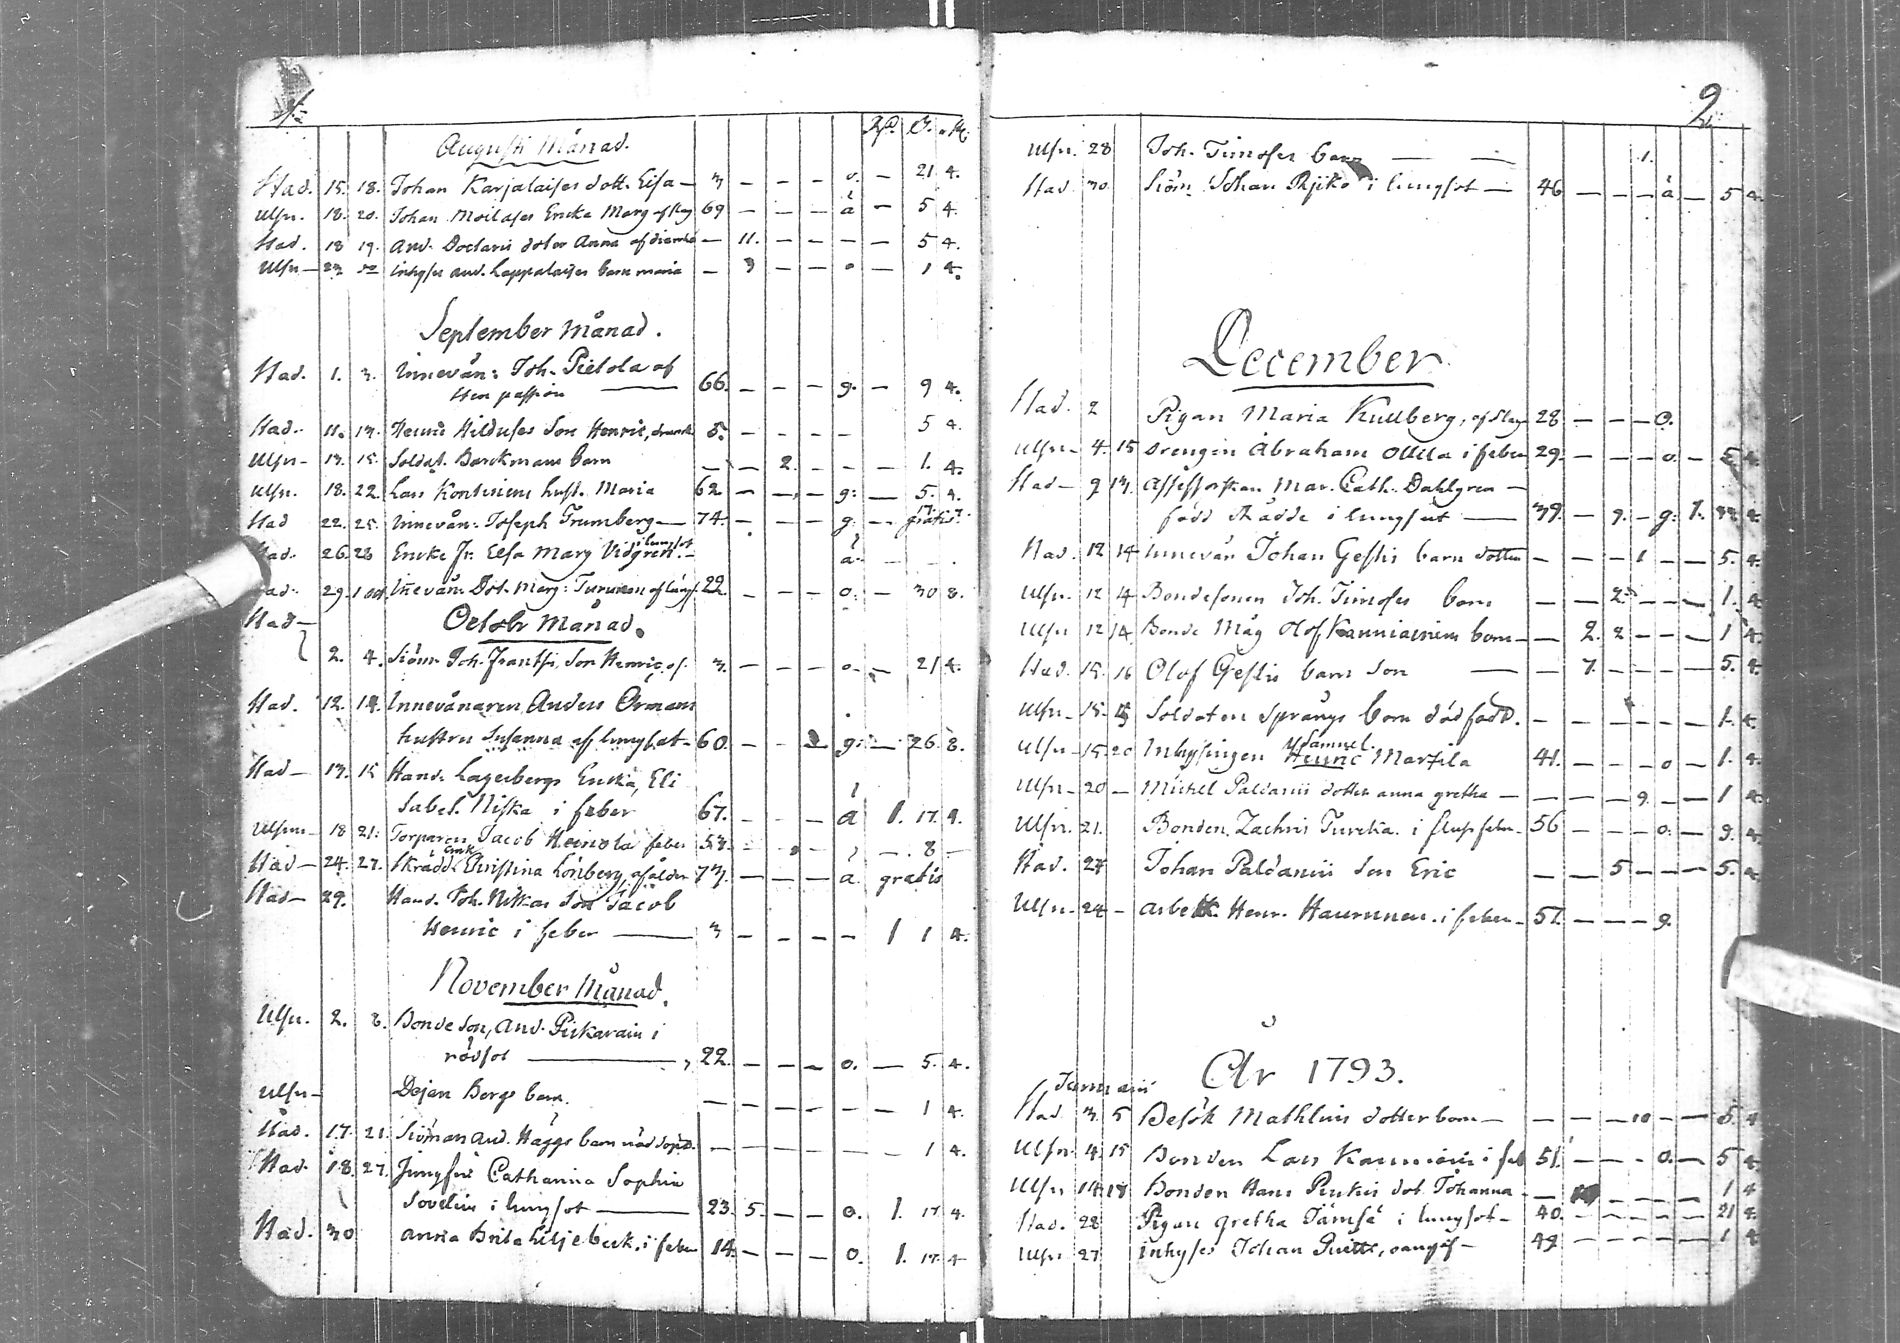 1.
Rd. S. R.
Augusti Månad.
Stad. 15. 18. Johan Karjalaises dott. Lisa — 3 — — — o. — 21 4.
Ulfu. 18. 20. Johan Moilases Encka Marg 69 — — — å — 5 4.
Stad. 18 19. And. Doctaris dotor Anna — 11. — — — — 5 4.
Ulfu — inhyses And. Lappalaises barn maria — 3 — — o — 1 4.
September Månad.
Stad. 1. 3. Innevån: Joh. Pietola af
66. — — — g. — 9 4.
Stad. 11. 13. Henric Hilduses Son Henric, 5. — — — — 5 4.
Ulfu — 13. 15. Soldat. Barckmans barn — — 2. — — — 1. 4.
Ulfu. 18. 22. Lars Kontinens hust. Maria 62 — — — g: — 5. 4.
Stad 22. 25. Innevån: Joseph Trumberg — 74. — — — g — gratis
i lungsot
26. 28 Encke Fr. Elsa Marg Vidgren. — å — — .
29. 1 Innevån: Dot. Marg: Turunen af lungs. 22 — — — o. — 30 8.
Stad — Octobr Månad.
2. 4. Siöm. Joh. Frantsi, Son Henric, af 3. — — — o — 21 4.
Stad. 12. 14. Innevånaren Anders Örmans
hustru Susanna af lungsot — 60. — — — g: — 26. 8.
Stad — 13. 15 Hand. Lagerbergs Encka, Eli
sabet. Niska i feber 67. — — — å 1. 17. 4.
Ulfu — 18 21. Torparen Jacob Heinola feber 53. — — — — 8 —
Enk
Stad — 24. 27. Skrädd. Christina Lönberg af ålder 73. — — — å gratis
Stad — 29. Hand. Joh. Nikkas Son Jacob
Henric i feber — 3 — — — — 1 1 4.
November Månad.
Ulfu. 2. 8. Bonde Son, And. Pickarain i
rödsot — 22. — — — o. — 5. 4.
Ulfu — Dejan Borgs barn. — — — — — — 1 4.
Stad. 17. 21. Siöman And. Häggs barn nöddöpt. — — — — — — 1 4.
Stad. 18. 27. Jungfru Catharina Sophia
Sovelius i lungsot — 23. 5. — — o. 1. 17. 4.
Stad. 30 Anna Brita Liljebeck, i feber 14. — — — o. 1. 17. 4
2.
Ulfu. 28 Joh. Timoses barn — — 1.
Stad 30 Siöm. Johan Rjiko i lungsot — 46 — — — å — 5 4.
December
Stad. 2 Pigan Maria Kullberg, af Slag 28 — — — o.
Ulfu — 4. 15 Drengen Abraham Ollila i feber 29. — — — o. — 5 4.
Stad — 9 13. Assessorskan Mar. Cath. Dahlgren —
född Rådde i lungsot — 39. — 9. — g. 1. 4.
Stad. 12 14 Innevån Johan Gestis barn dotter — — — 1 — — 5. 4.
Ulfu. 12 14 Bondesonen Joh. Timoses barn — — 2. — — — 1. 4.
Ulfu 12 14. Bonde Måg Olof Kauniainens barn — — 2. 2 — — — 1 4.
Stad. 15. 16 Olof Gestis barn Son — — 7. — — — — 5. 4.
Ulfu — 15. Soldaten Språngs barn dödfödd. — — — — — — 1. 4.
Samuel
Ulfu — 15 20 Inhysingen Henric Martila 41. — — — o — 1. 4.
Ulfu — 20 — Michel Paldanii dotter anna gretha — — — — 9. — — 1 4.
Ulfu. 21. Bonden Zachris Tureka. i 56 — — — o. — 9. 4.
Stad. 27 Johan Paldanii Son Eric — — 5 — — — 5. 4.
Ulfu. 24 — Arbetk. Henr. Haurunen. i feber — 57. — — — g.
År 1793.
Januarii
Stad 3. 5 Besök Mathlins dotter barn — — — — 10 — — 5 4
Ulfu 4. 15 Bonden Lars Kauniain i feb 51. — — — o. — 5 4.
Ulfu 14. 18 Bonden Hans Pirkis dot. Johanna — — — — — — 1 4
Stad. 28 Pigan gretha Jämsä i lungsot — 40. — — — — — 21 4.
Ulfu 27 inhyses Johan — 49 — — — — — 1 4